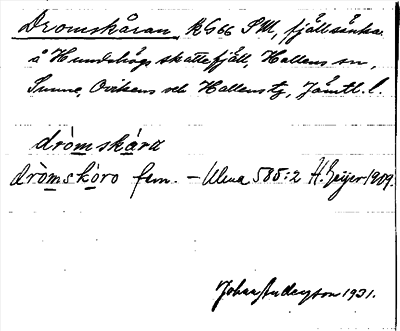 Dromskåran, KG66 SM, fjällsänka
å Hundshögs skattefjäll, Hallens sn,
Sunne, Ovikens och Hallens tg, Jämtl. l.
drömskåra
drömskoro fem. – Ulma 585:2 H. Geijer 1909.
Johan Anderzson 1931.